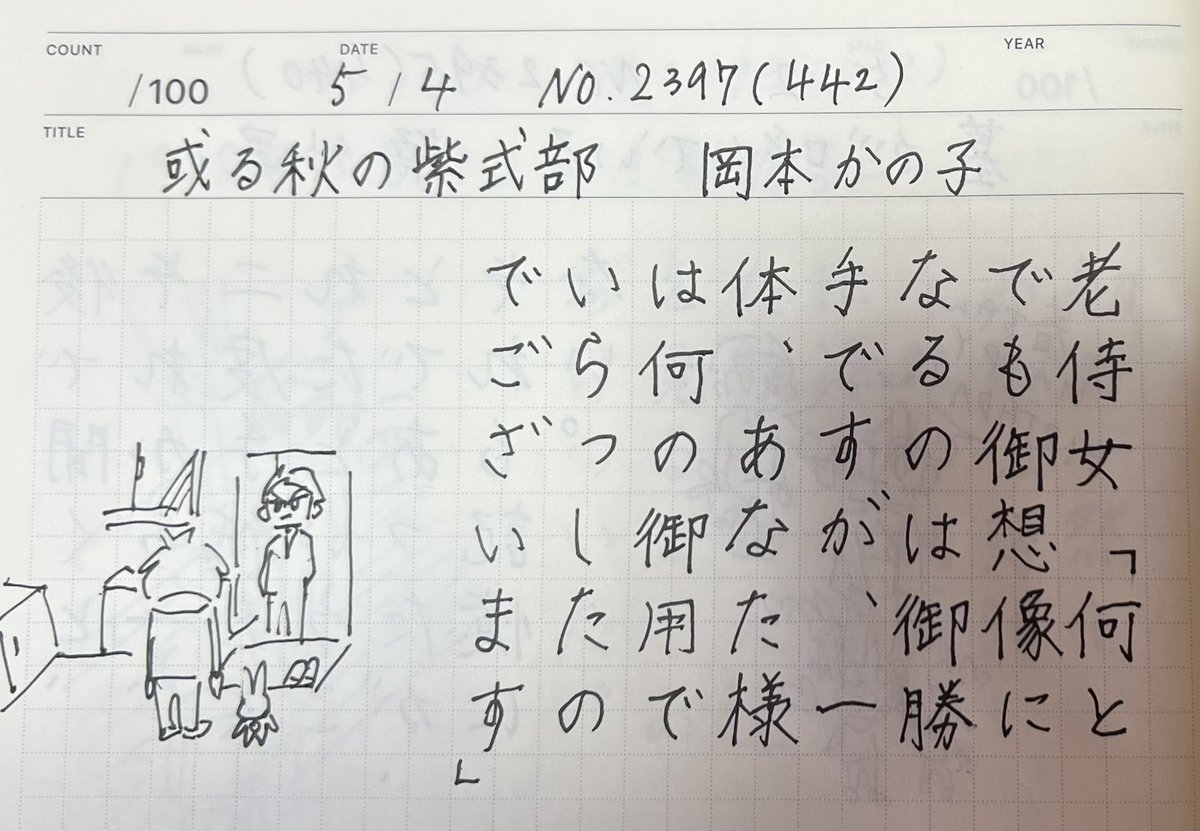 COUNT
/100
DATE
5/4 NO.2397(442)
YEAR
TITLE
或る秋の紫式部 岡本かの子
老侍女「何と
でも御想像に
なるのは御勝
手ですが、一
体、あなた様
は何の御用で
いらっしたの
でございます」